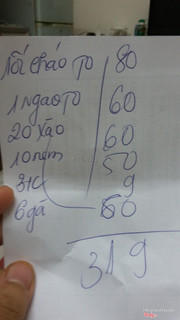 Nồi cháo to 80
1 ngao to 60
20 xào 60
10 nem 50
3tc 9
6 đá 60
319